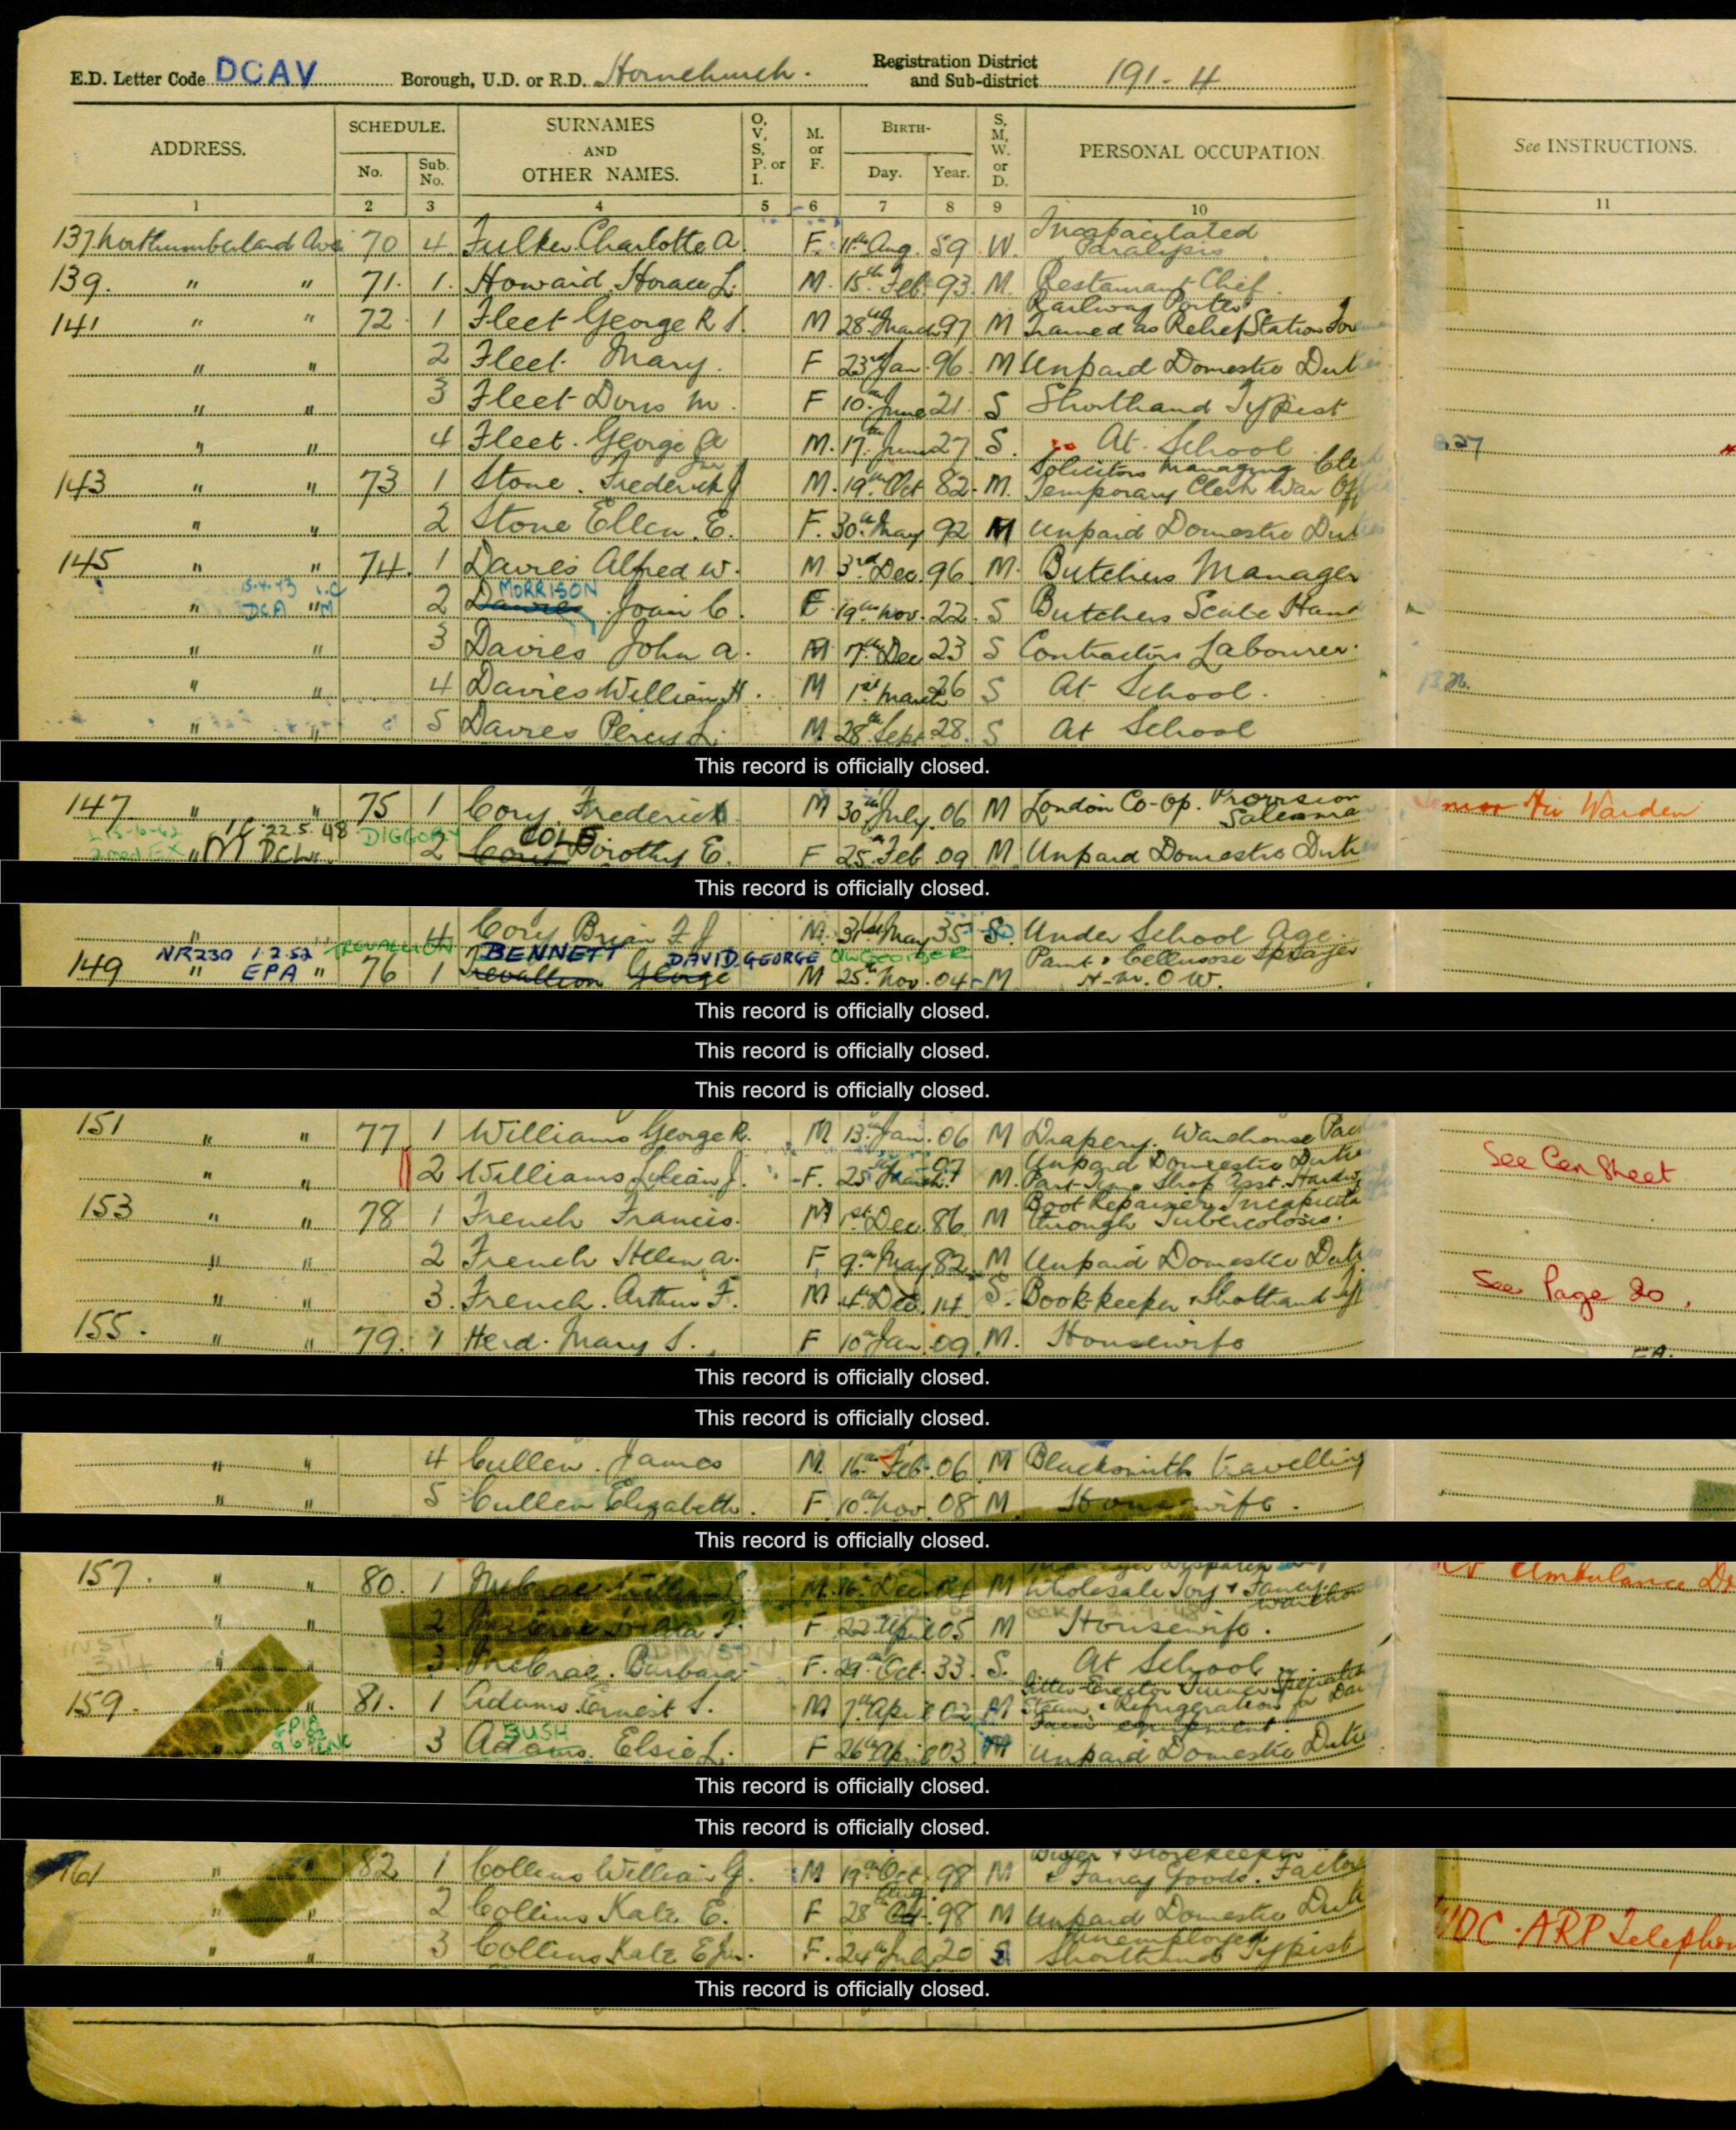 E.D. Letter Code DCAV Borough, U.D. or R.D. Hornchurch. Registration District and Sub-district 191-4
ADDRESS. SCHEDULE. No. Sub. No. SURNAMES AND OTHER NAMES. O, V, S, P. or I. M. or F. BIRTH- Day. Year. S, M, W. or D. PERSONAL OCCUPATION. See INSTRUCTIONS.
1 2 3 4 5 6 7 8 9 10 11
137 Northumberland Ave 70 4 Fulker Charlotte A. F. 11th Aug. 59 W. Incapacitated Paralysis
139. " " 71. 1. Howard Horace L. M. 15th Feb 93. M. Restaurant Chef.
141 " " 72 1 Fleet George R M 28th March 97 M Railway Porter trained as Relief Station
" " 2 Fleet Mary. F 23rd Jan. 96. M Unpaid Domestic
" " 3 Fleet Doris M. F 10th June 21. S Shorthand Typist
" " 4 Fleet. George A M. 17th June 27 S. At School
143 " " 73 1 Stone. Frederick J M. 19th Oct 82. M. Solicitors Managing Temporary Clerk War
" " 2 Stone Ellen. E. F. 30th May 92 M Unpaid Domestic
145 " " 74. 1 Davies Alfred W. M 3rd Dec. 96 M. Butchers Manager
15.4.43 MORRISON
" " 2 Davies Joan C. F 19th Nov. 22. S Butchers Scale
" " 3 Davies John A. M 7th Dec 23 S Contractors Labourer.
" " 4 Davies William H. M 1st March 26 S At School.
" " 5 Davies Percy L. M 28th Sept. 28. S At School
This record is officially closed.
147 " " 75 1 Cory. Frederick M 30th July. 06 M London Co-op. Provision Air Warden
22.5.48 DIGGORY COLE
2 Cory Dorothy E. F 25th Feb 09 M. Unpaid Domestic
This record is officially closed.
" 4 Cory Brian F J M. 31st May 35 S. Under School Age.
NR230 1.2.52 TREVALLION BENNETT DAVID GEORGE
149 " EPA " 76 1 Trevallion George M 25th Nov. 04 M Paint & Cellulose Sprayer
This record is officially closed.
This record is officially closed.
This record is officially closed.
151 " " 77. 1 Williams George R. M 13th Jan. 06 M Drapery. Warehouse
" 2 Williams J. F. 25th March 07 M. Unpaid Domestic Part Time Shop Asst. See Gen Sheet
153 " " 78 1 French Francis. M 1st Dec. 86 M Boot Repairer through Tuberculosis.
" " 2 French Helen A. F 9th May 82 M Unpaid Domestic
" " 3. French. Arthur F. M 4th Dec. 14 S. Book-keeper & Shorthand See Page 20,
155. " " 79. 1 Herd. Mary S. F 10th Jan. 09. M. Housewife
This record is officially closed.
This record is officially closed.
" " 4 Cullen. James M. 16th Feb. 06 M Blacksmith travelling
" " 5 Cullen Elizabeth. F 10th Nov 08 M Housewife.
This record is officially closed.
157. " " 80. 1 M. 16th Dec. M Wholesale Toy & Fancy Ambulance
" " 2 F 22nd April 05 M Housewife.
" 3. McCrae. Barbara F. 29th Oct. 33. S. At School
159. " 81. 1 Adams. Ernest S. M 7th April 02 M Steam & Refrigeration for
BUSH
3 Adams. Elsie L. F 26th April 03 M Unpaid Domestic
This record is officially closed.
This record is officially closed.
161 " " 82 1 Collins William G. M 19th Oct. 98 M Buyer & Storekeeper & Fancy Goods.
" " 2 Collins Kate. E. F 28th Aug. 98 M Unpaid Domestic
" " 3 Collins Kate E Jn. F. 24th July 20 S Unemployed Shorthand Typist UDC. ARP
This record is officially closed.